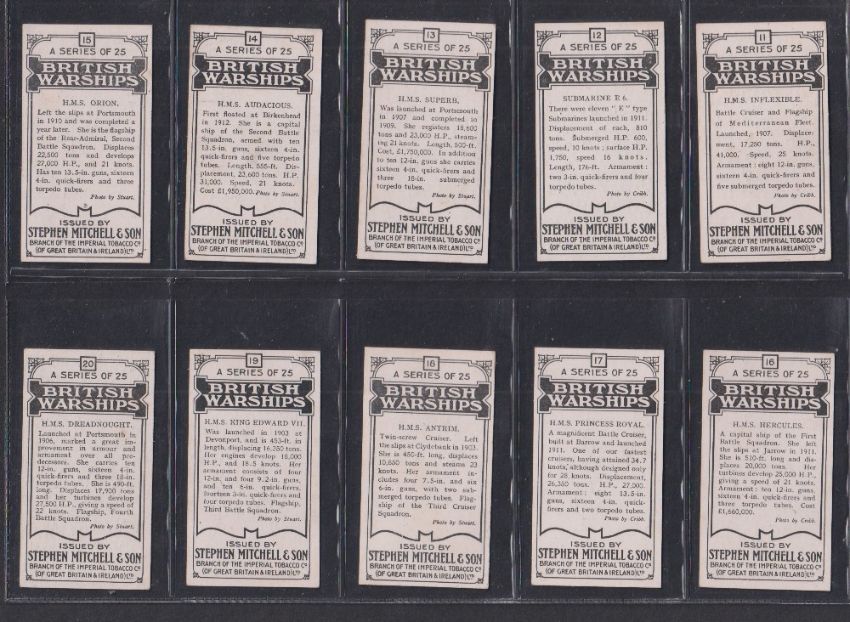 15
A SERIES OF 25
BRITISH
WARSHIPS
H.M.S. ORION.
Left the slips at Portsmouth
in 1910 and was completed a
year later. She is the flagship
of the Rear-Admiral, Second
Battle Squadron. Displaces
22,500 tons and develops
27,000 H.P., and 21 knots.
Has ten 13.5-in. guns, sixteen
4-in. quick-firers and three
torpedo tubes.
Photo by Stuart.
ISSUED BY
STEPHEN MITCHELL & SON
BRANCH OF THE IMPERIAL TOBACCO Co
(OF GREAT BRITAIN & IRELAND) LTD
14
A SERIES OF 25
BRITISH
WARSHIPS
H.M.S. AUDACIOUS.
First floated at Birkenhead
in 1912. She is a capital
ship of the Second Battle
Squadron, armed with ten
13.5-in. guns, sixteen 4-in.
quick-firers and five torpedo
tubes. Length, 555-ft. Dis-
placement, 23,600 tons. H.P.
31,000. Speed, 21 knots.
Cost £1,950,000. Photo by Stuart.
ISSUED BY
STEPHEN MITCHELL & SON
BRANCH OF THE IMPERIAL TOBACCO Co
(OF GREAT BRITAIN & IRELAND) LTD
13
A SERIES OF 25
BRITISH
WARSHIPS
H.M.S. SUPERB.
Was launched at Portsmouth
in 1907 and completed in
1909. She registers 18,600
tons and 23,000 H.P., steam-
ing 21 knots. Length, 500-ft.
Cost, £1,750,000. In addition
to ten 12-in. guns she carries
sixteen 4-in. quick-firers and
three 18-in. submerged
torpedo tubes.
Photo by Stuart.
ISSUED BY
STEPHEN MITCHELL & SON
BRANCH OF THE IMPERIAL TOBACCO Co
(OF GREAT BRITAIN & IRELAND) LTD
12
A SERIES OF 25
BRITISH
WARSHIPS
SUBMARINE E 6.
There were eleven "E" type
Submarines launched in 1911.
Displacement of each, 810
tons. Submerged H.P. 600,
speed, 10 knots; surface H.P.
1,750, speed 16 knots.
Length, 176-ft. Armament:
two 3-in. quick-firers and four
torpedo tubes.
Photo by Cribb.
ISSUED BY
STEPHEN MITCHELL & SON
BRANCH OF THE IMPERIAL TOBACCO Co
(OF GREAT BRITAIN & IRELAND) LTD
11
A SERIES OF 25
BRITISH
WARSHIPS
H.M.S. INFLEXIBLE.
Battle Cruiser and Flagship
of Mediterranean Fleet.
Launched, 1907. Displace-
ment, 17,250 tons. H.P.
41,000. Speed, 25 knots.
Armament: eight 12-in. guns,
sixteen 4-in. quick-firers and
five submerged torpedo tubes.
Photo by Cribb.
ISSUED BY
STEPHEN MITCHELL & SON
BRANCH OF THE IMPERIAL TOBACCO Co
(OF GREAT BRITAIN & IRELAND) LTD
20
A SERIES OF 25
BRITISH
WARSHIPS
H.M.S. DREADNOUGHT.
Launched at Portsmouth in
1906, marked a great im-
provement in armour and
armament over all pre-
decessors. She carries ten
12-in. guns, sixteen 4-in.
quick-firers and three 18-in.
torpedo tubes. She is 490-ft.
long. Displaces 17,900 tons
and her turbines develop
27,500 H.P., giving a speed of
22 knots. Flagship, Fourth
Battle Squadron.
Photo by Stuart.
ISSUED BY
STEPHEN MITCHELL & SON
BRANCH OF THE IMPERIAL TOBACCO Co
(OF GREAT BRITAIN & IRELAND) LTD
19
A SERIES OF 25
BRITISH
WARSHIPS
H.M.S. KING EDWARD VII.
Was launched in 1903 at
Devonport, and is 453-ft. in
length, displacing 16,350 tons.
Her engines develop 18,000
H.P., and 18.5 knots. Her
armament consists of four
12-in. and four 9.2-in. guns,
and ten 6-in. quick-firers,
fourteen 3-in. quick-firers and
four torpedo tubes. Flagship,
Third Battle Squadron.
Photo by Stuart.
ISSUED BY
STEPHEN MITCHELL & SON
BRANCH OF THE IMPERIAL TOBACCO Co
(OF GREAT BRITAIN & IRELAND) LTD
A SERIES OF 25
BRITISH
WARSHIPS
H.M.S. ANTRIM.
Twin-screw Cruiser. Left
the slips at Clydebank in 1903.
She is 450-ft. long, displaces
10,850 tons and steams 23
knots. Her armament in-
cludes four 7.5-in. and six
6-in. guns, with two sub-
merged torpedo tubes. Flag-
ship of the Third Cruiser
Squadron.
Photo by Stuart.
ISSUED BY
STEPHEN MITCHELL & SON
BRANCH OF THE IMPERIAL TOBACCO Co
(OF GREAT BRITAIN & IRELAND) LTD
17
A SERIES OF 25
BRITISH
WARSHIPS
H.M.S. PRINCESS ROYAL.
A magnificent Battle Cruiser,
built at Barrow and launched
1911. One of our fastest
cruisers, having attained 34.7
knots, although designed only
for 28 knots. Displacement,
26,350 tons. H.P., 27,000.
Armament: eight 13.5-in.
guns, sixteen 4-in. quick-
firers and two torpedo tubes.
Photo by Cribb.
ISSUED BY
STEPHEN MITCHELL & SON
BRANCH OF THE IMPERIAL TOBACCO Co
(OF GREAT BRITAIN & IRELAND) LTD
16
A SERIES OF 25
BRITISH
WARSHIPS
H.M.S. HERCULES.
A capital ship of the First
Battle Squadron. She left
the slips at Jarrow in 1911.
She is 510-ft. long and dis-
places 20,000 tons. Her
turbines develop 25,000 H.P.,
giving a speed of 21 knots.
Armament: ten 12-in. guns,
sixteen 4-in. quick-firers and
three torpedo tubes. Cost
£1,660,000.
Photo by Cribb.
ISSUED BY
STEPHEN MITCHELL & SON
BRANCH OF THE IMPERIAL TOBACCO Co
(OF GREAT BRITAIN & IRELAND) LTD